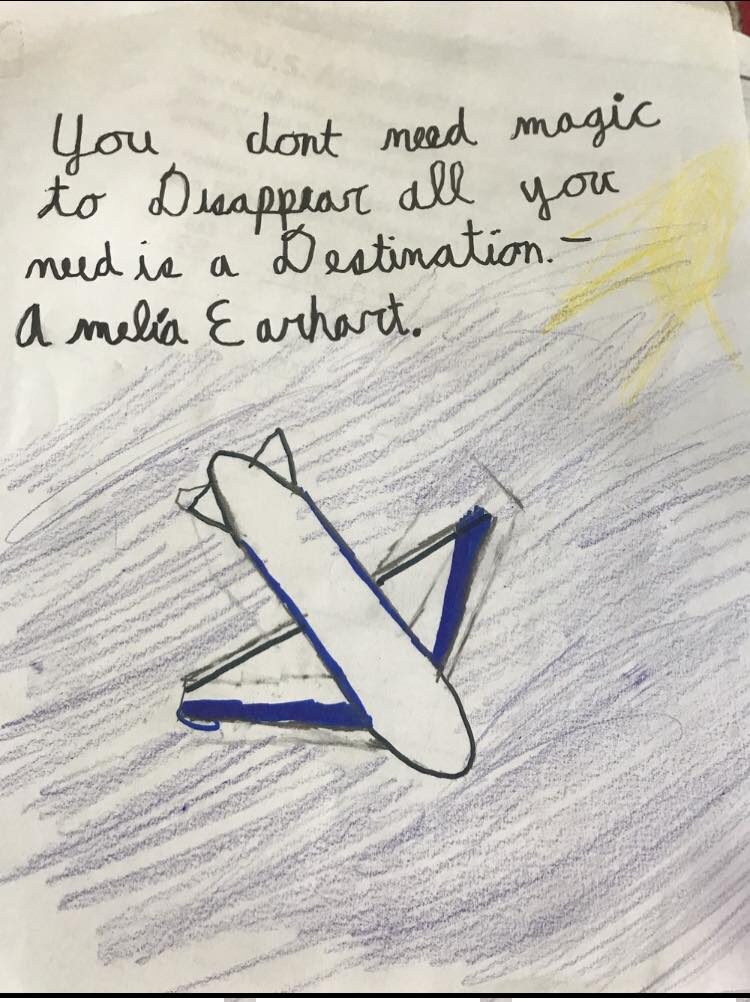 You dont need magic
to Disappear all you
need is a Destination.-
Amelia Earhart.